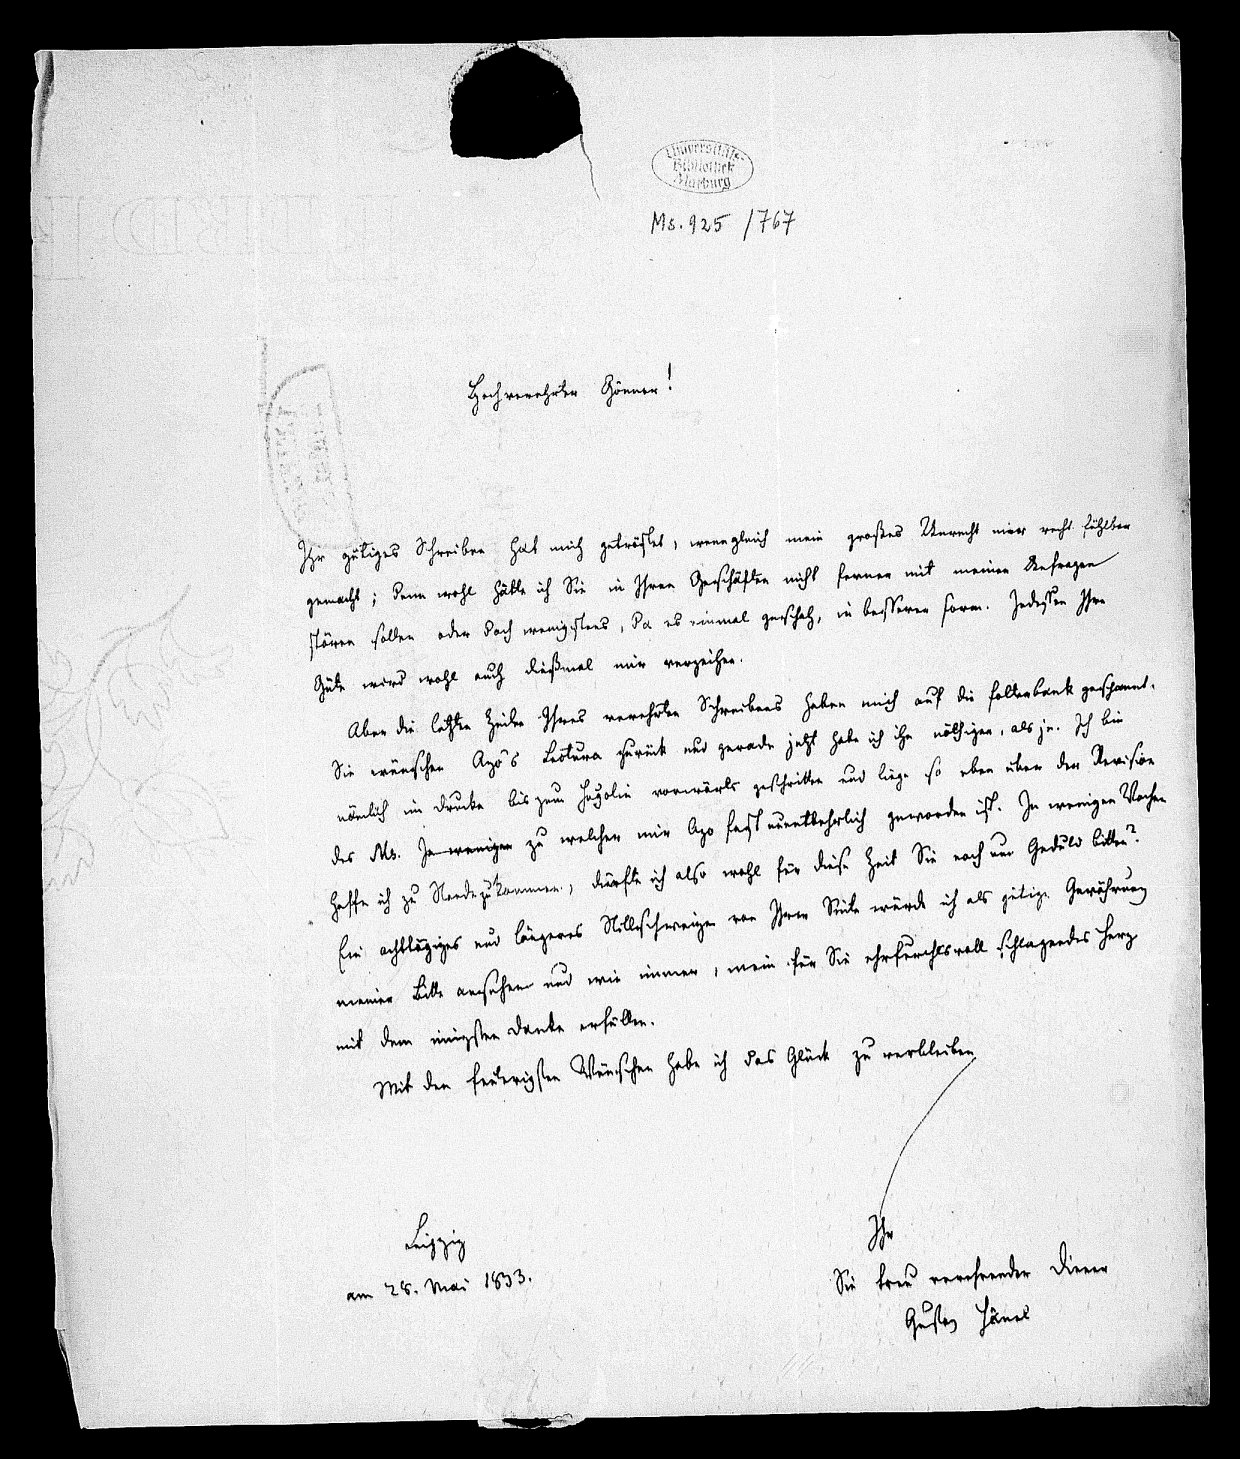 Universitäts-
Bibliothek
Marburg
Ms. 925 /767
Hochverehrter Gönner!
Ihr gütiges Schreiben hat mich getröstet, wenngleich mein großes Unrecht mir recht fühlbar
gemacht; denn wohl hätte ich Sie in Ihren Geschäften nicht ferner mit meinen Anfragen
stören sollen oder doch wenigstens, da es einmal geschah, in besserer Form. Indessen Ihre
Güte wird wohl auch dießmal mir verzeihen.
Aber die letzten Zeilen Ihres verehrten Schreibens haben mich auf die Folterbank gespannt.
Sie wünschen Azo's Lectura zurück und gerade jetzt habe ich ihn nöthiger, als je. Ich bin
nämlich im Drucke bis zum Hugolin vorwärts geschritten und liege so eben über der Revision
des Ms. In wenigen zu welcher mir Azo fast unentbehrlich geworden ist. In wenigen Wochen
hoffe ich zu Rande zu kommen, dürfte ich also wohl für diese Zeit Sie noch um Geduld bitten?
Ein achttägiges und längeres Stillschweigen von Ihrer Seite würde ich als gütige Gewährung
meiner Bitte ansehen und wie immer, mein für Sie ehrfurchtsvoll schlagendes Herz
mit dem innigsten Danke erfüllen.
Mit den feurigsten Wünschen habe ich das Glück zu verbleiben
Ihr
Leipzig
am 28. Mai 1833.
Sie treu verehrender Diener
Gustav Hänel